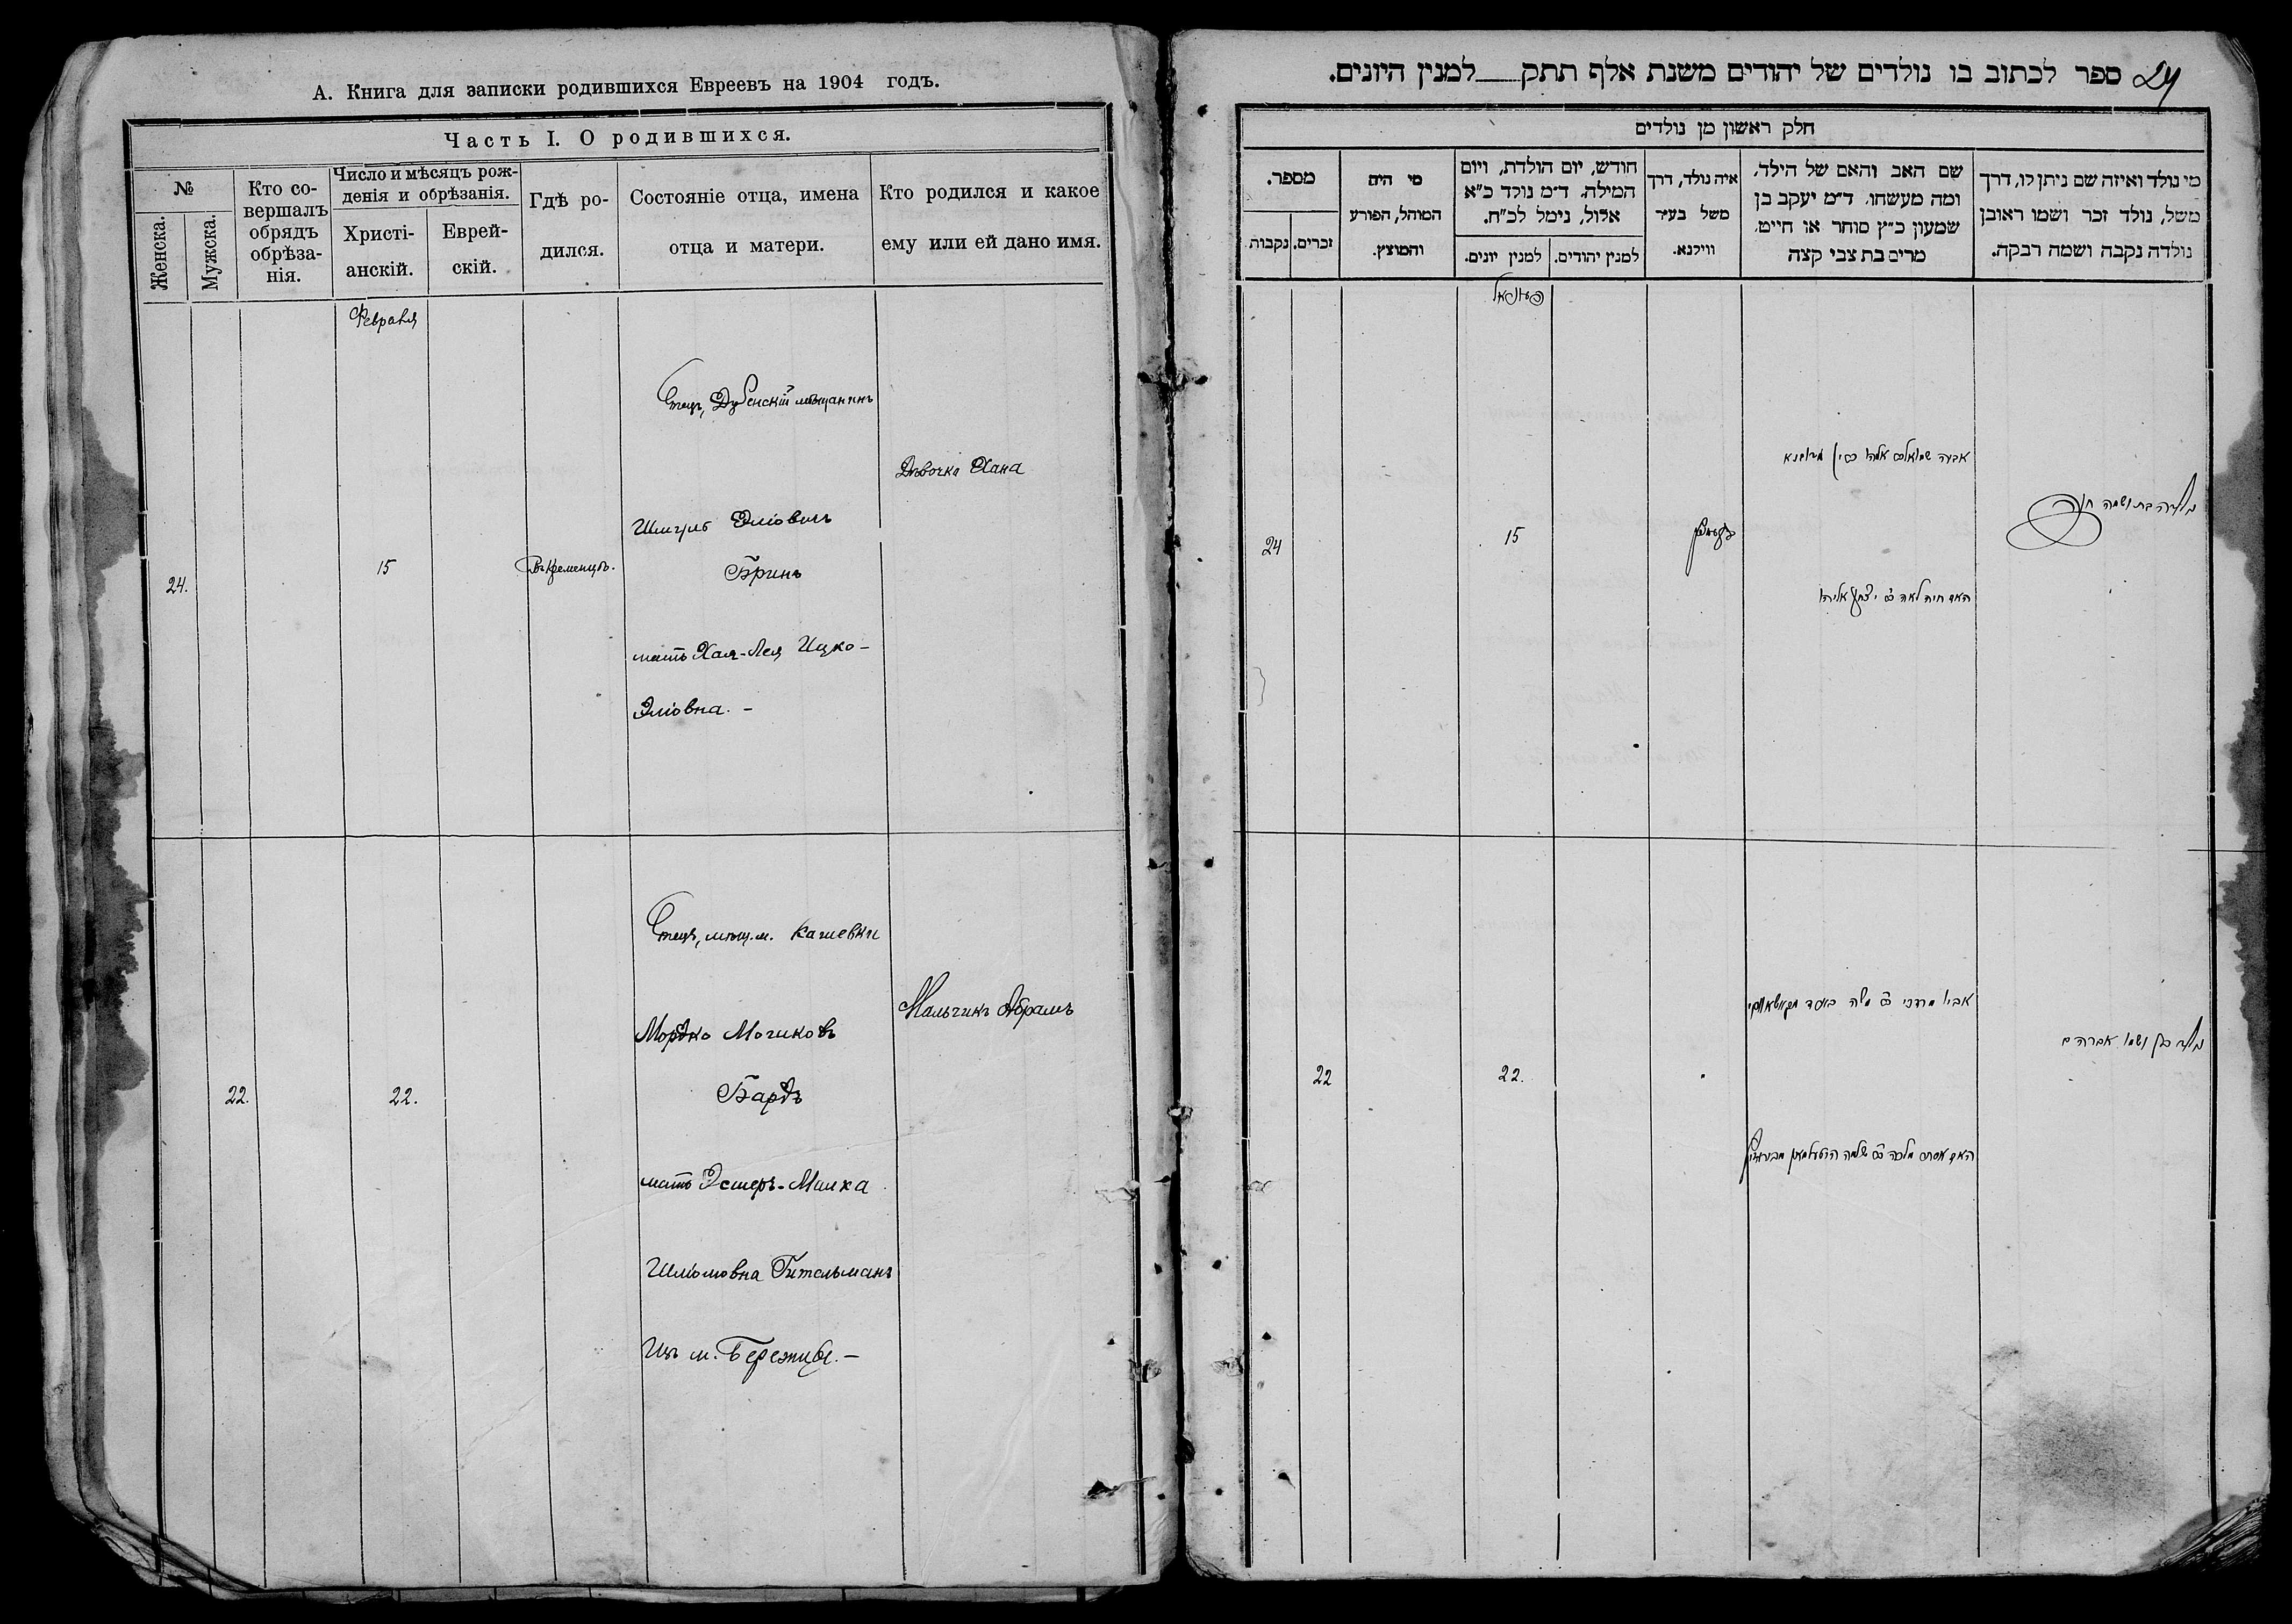 А. Книга для записки родившихся Евреевъ на 1904 годъ.
Часть I. О родившихся.
№
Женска.
Мужска.
Кто совершалъ обрядъ обрѣза-
нія.
Число и мѣсяцъ рож-
денія и обрѣзанія.
Христі-
анскій.
Еврей-
скій.
Гдѣ ро-
дился.
Состояніе отца, имена
отца и матери.
Кто родился и какое
ему или ей дано имя.
Февраля
24.
15
Въ Кременцѣ.
Отецъ, Дубенскій мѣщанинъ
Шмуль Эліовичъ
Бринъ
мать Хая-Лея Ицко-
Эліовна. -
Дѣвочка Хана
22.
22.
Отецъ, мѣщ. м.
Мордко
Бардъ
мать Эстеръ-Милка
Шліомовна Гительманъ
Изъ м. Бережцы. -
Мальчикъ Абрамъ
24
ספר לכתוב בו נולדים של יהודים משנת אלף תתק__למנין היונים.
חלק ראשון מן נולדים
מספר.
נקבות
זכרים.
מי היה
המוהל, הפורע
והמוצץ.
חודש, יום הולדת, ויום
המילה. ד״מ נולד כ״א
אלול, נימל לכ״ח.
למנין יונים.
למנין יהודים.
איה נולד, דרך
משל בעיר
ווילנא.
שם האב והאם של הילד,
ומה מעשהו. ד״מ יעקב בן
שמעון כ״ץ סוחר או חייט,
מרים בת צבי קצה
מי נולד ואיזה שם ניתן לו, דרך
משל, נולד זכר ושמו ראובן
נולדה נקבה ושמה רבקה.
24
15
האם חיה לאה
ושמה חנה
22
22.
נולד בן ושמו אברהם